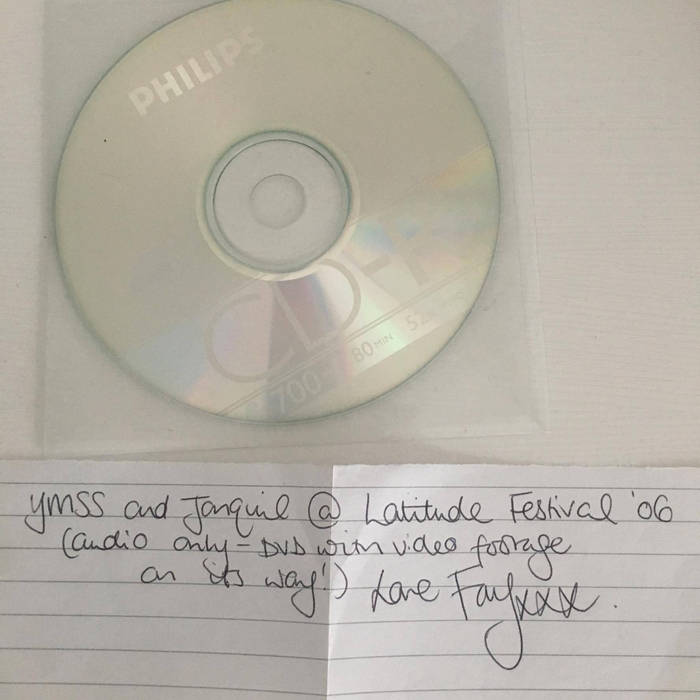 PHILIPS
CD-R
700 80 MIN 52
YMSS and Jonquil @ Latitude Festival '06
(audio only - DVD with video footage
on its way!) Love Fayxxx.